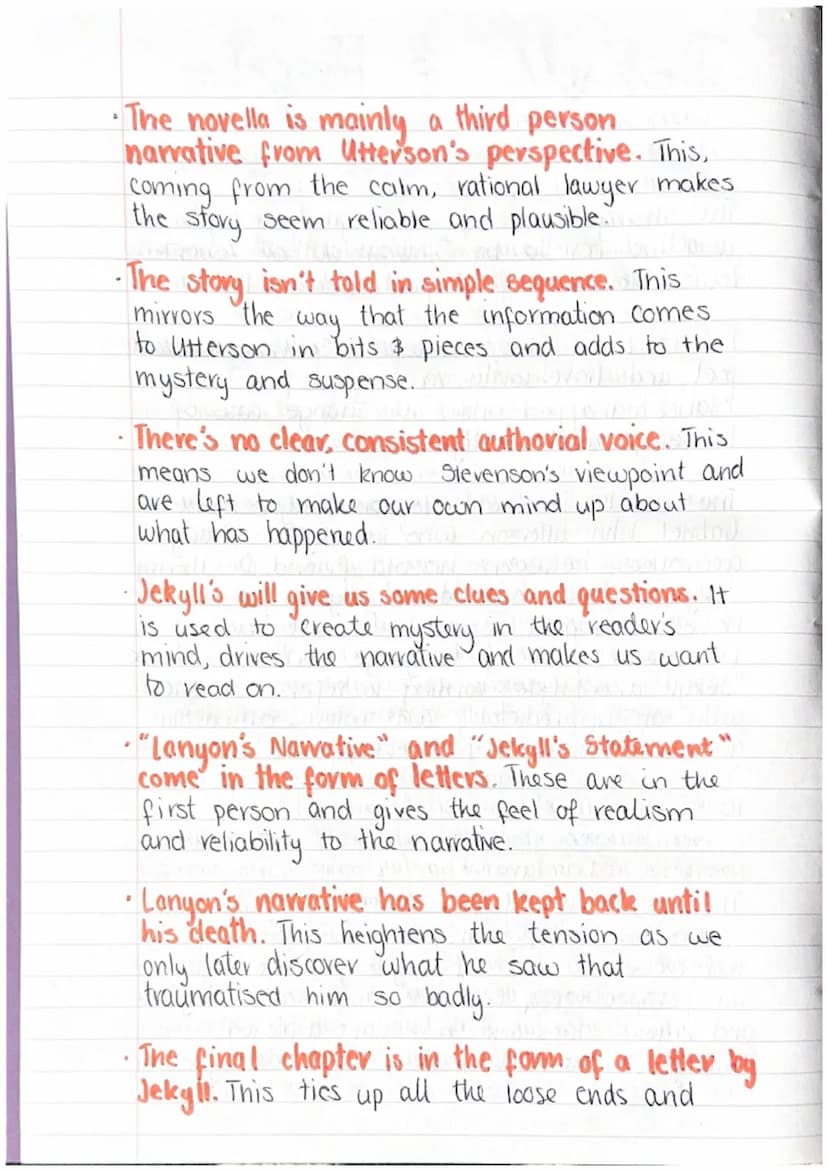 · The novella is mainly a third person
narrative from Utterson's perspective. This,
coming from the calm, rational lawyer makes
the story seem reliable and plausible.
· The story isn't told in simple sequence. This
mirrors the way that the information comes
to Utterson in bits & pieces and adds to the
mystery and suspense.
· There's no clear, consistent authorial voice. This
means we don't know Stevenson's viewpoint and
are left to make our own mind up about
what has happened.
· Jekyll's will give us some clues and questions. It
is used to create mystery in the reader's
mind, drives the narrative and makes us want
to read on.
· "Lanyon's Narrative" and "Jekyll's Statement"
come in the form of letters. These are in the
first person and gives the feel of realism
and reliability to the narrative.
· Lanyon's narrative has been kept back until
his death. This heightens the tension as we
only later discover what he saw that
traumatised him so badly.
· The final chapter is in the form of a letter by
Jekyll. This ties up all the loose ends and